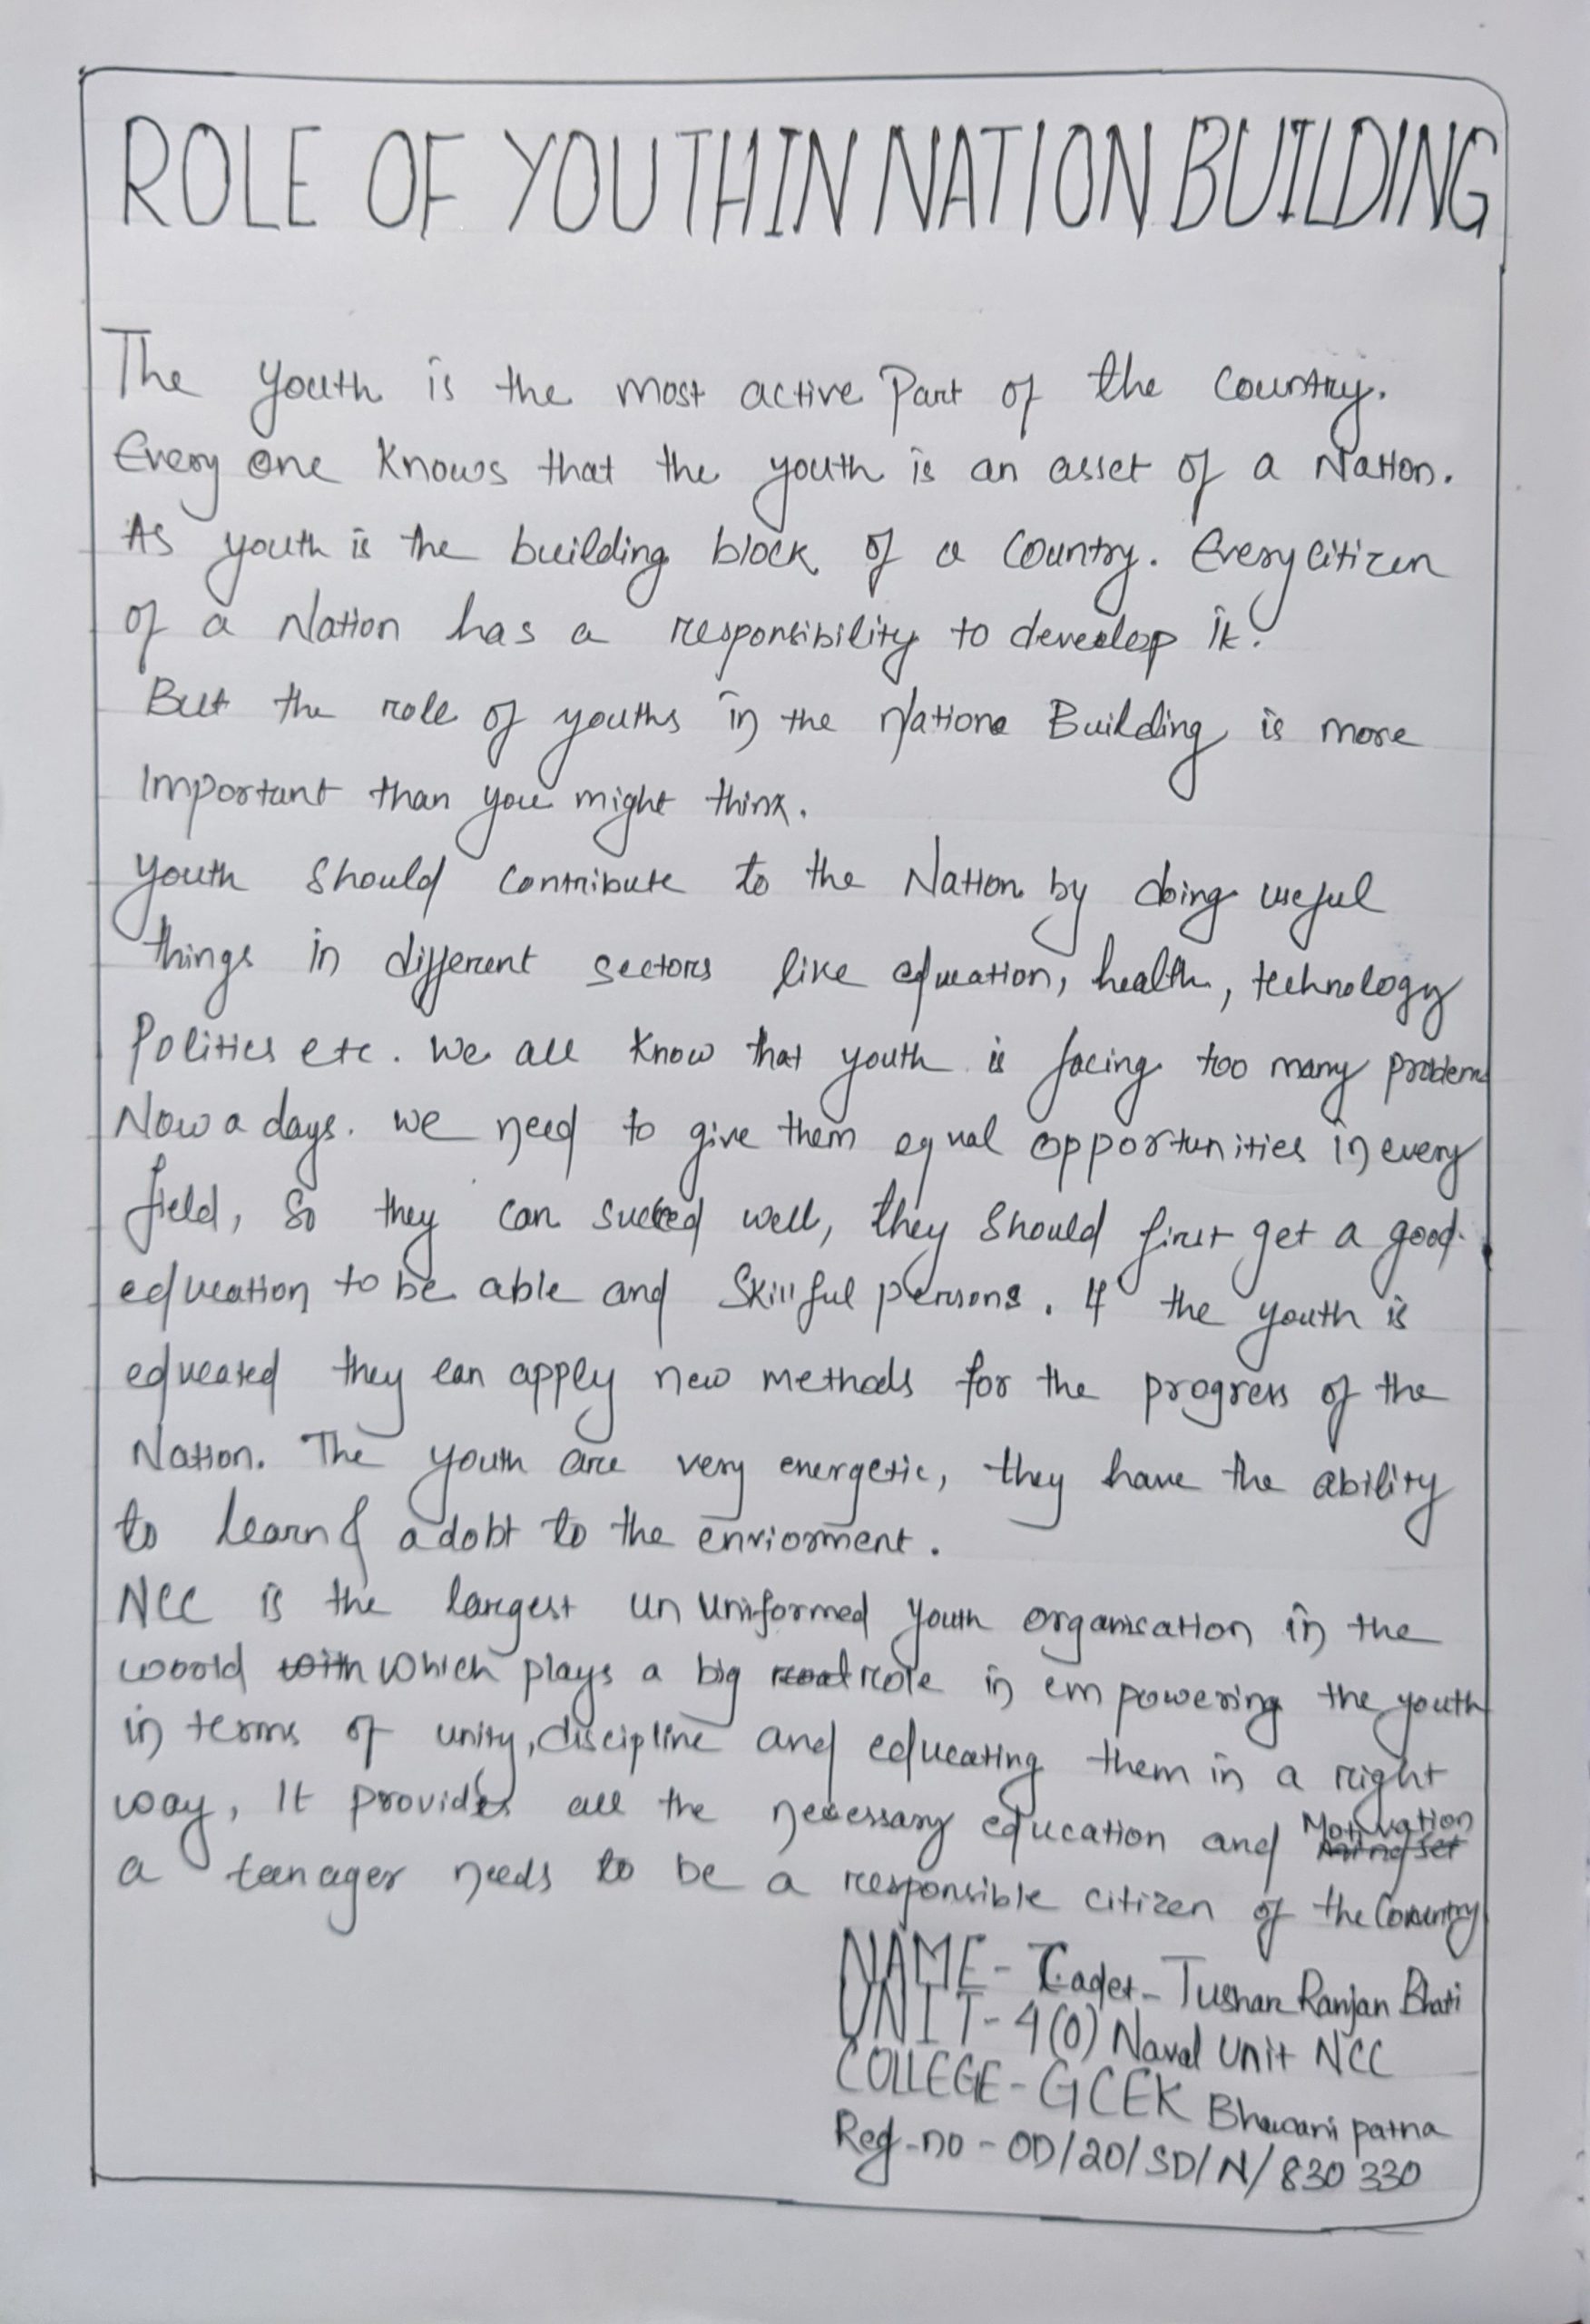 ROLE OF YOUTH IN NATION BUILDING
The youth is the most active Part of the country.
Every one knows that the youth is an asset of a Nation.
As youth is the building block of a Country. Every citizen
of a Nation has a responsibility to develop it.
But the role of youths in the Natione Building is more
Important than you might think.
Youth should contribute to the Nation by doing useful
things in different sectors like education, health, technology
Politics etc. We all know that youth is facing too many problems
Now a days. we need to give them equal opportunities in every
field, so they can succeed well, they should first get a good
education to be able and skillful persons. If the youth is
educated they can apply new methods for the progress of the
Nation. The youth are very energetic, they have the ability
to learn & adobt to the enviorment.
NCC is the largest un uniformed youth organisation in the
woorld with which plays a big role in empowering the youth
in terms of unity, discipline and educating them in a right
way, It provides all the necessary education and Motivation
a teenager needs to be a responsible citizen of the Country
NAME- Cadet- Tushar Ranjan Bhati
UNIT- 4(O) Naval Unit NCC
COLLEGE- GCEK Bhawanipatna
Reg-no - OD/20/SD/N/830 330